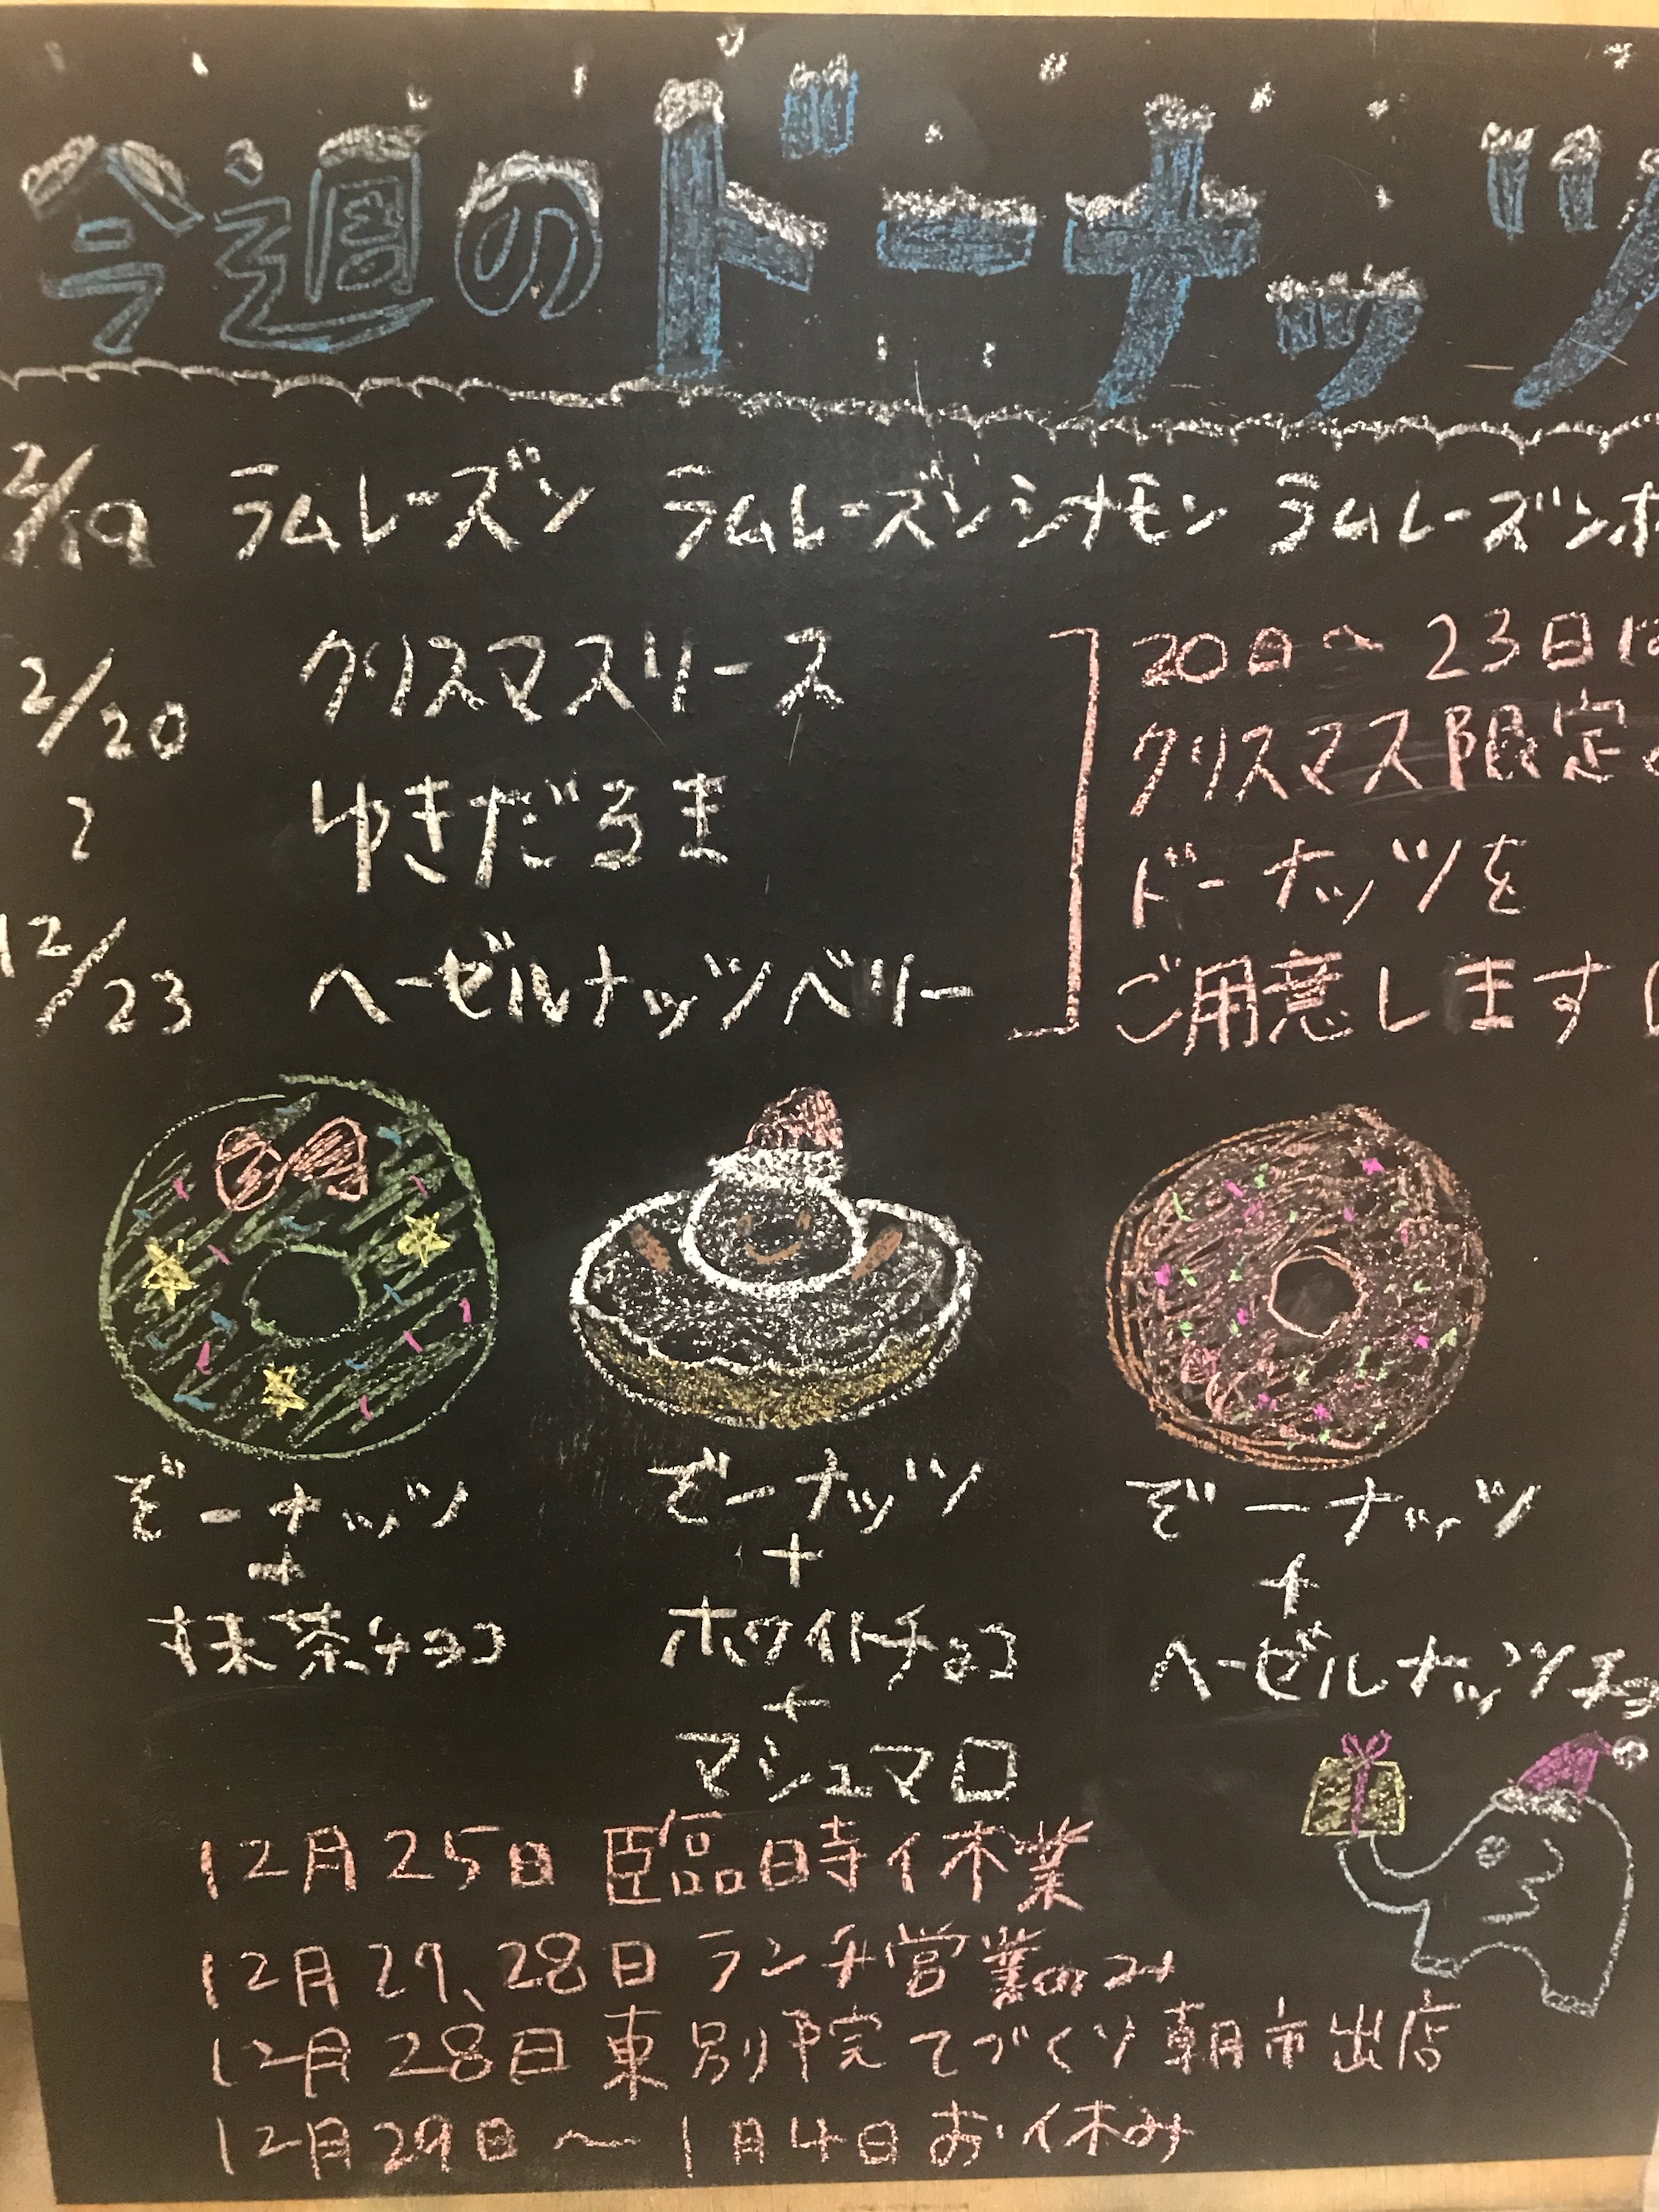 今週のドーナッツ
2/19 ラムレーズン ラムレーズンシナモン ラムレーズンホ
2/20 クリスマスリース
〜 ゆきだるま
12/23 ヘーゼルナッツベリー
20日〜23日は
クリスマス限定の
ドーナッツを
ご用意します
どーナッツ
+
抹茶チョコ
どーナッツ
+
ホワイトチョコ
+
マシュマロ
どーナッツ
+
ヘーゼルナッツチョ
12月25日 臨時休業
12月27、28日 ランチ営業のみ
12月28日 東別院てづくり朝市出店
12月29日〜1月4日お休み